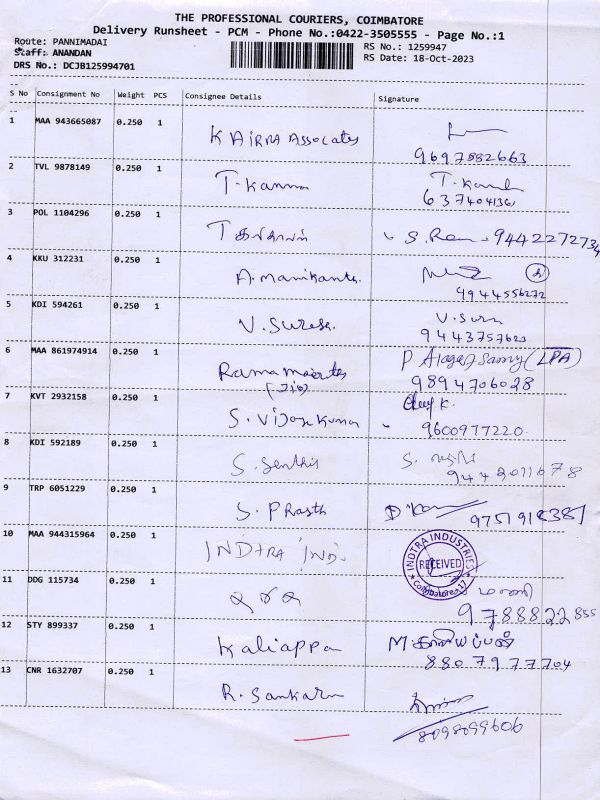 THE PROFESSIONAL COURIERS, COIMBATORE
Delivery Runsheet - PCM - Phone No.:0422-3505555 - Page No.:1
Route: PANNIMADAI
Staff: ANANDAN
RS No.: 1259947
DRS No.: DCJB125994701
RS Date: 18-Oct-2023
S No Consignment No Weight PCS Consignee Details Signature
1 MAA 943665087 0.250 1 KAIRRA Assocates
9697882663
2 TVL 9878149 0.250 1 T. Kanna
3 POL 1104296 0.250 1 S. Ram 9442272734
4 KKU 312231 0.250 1 A. Manikanta
9944556272
5 KDI 594261 0.250 1 V. Suresh V. Sure
9443757623
6 MAA 861974914 0.250 1 P Alagar Samy (LPA)
(Jio) 9894706028
7 KVT 2932158 0.250 1 S. Vijayakumar
9600977220
8 KDI 592189 0.250 1 S. Senthil
9442011678
9 TRP 6051229 0.250 1 S. PRasth
9751918381
10 MAA 944315964 0.250 1 INDTRA IND.
INDTRA INDUSTRIES
RECEIVED
Coimbatore-17
11 DDG 115734 0.250 1 மணி
9788822855
12 STY 899337 0.250 1 Kaliappa M. காளியப்பன்
8807977704
13 CNR 1632707 0.250 1 R. Sankara
8098099606